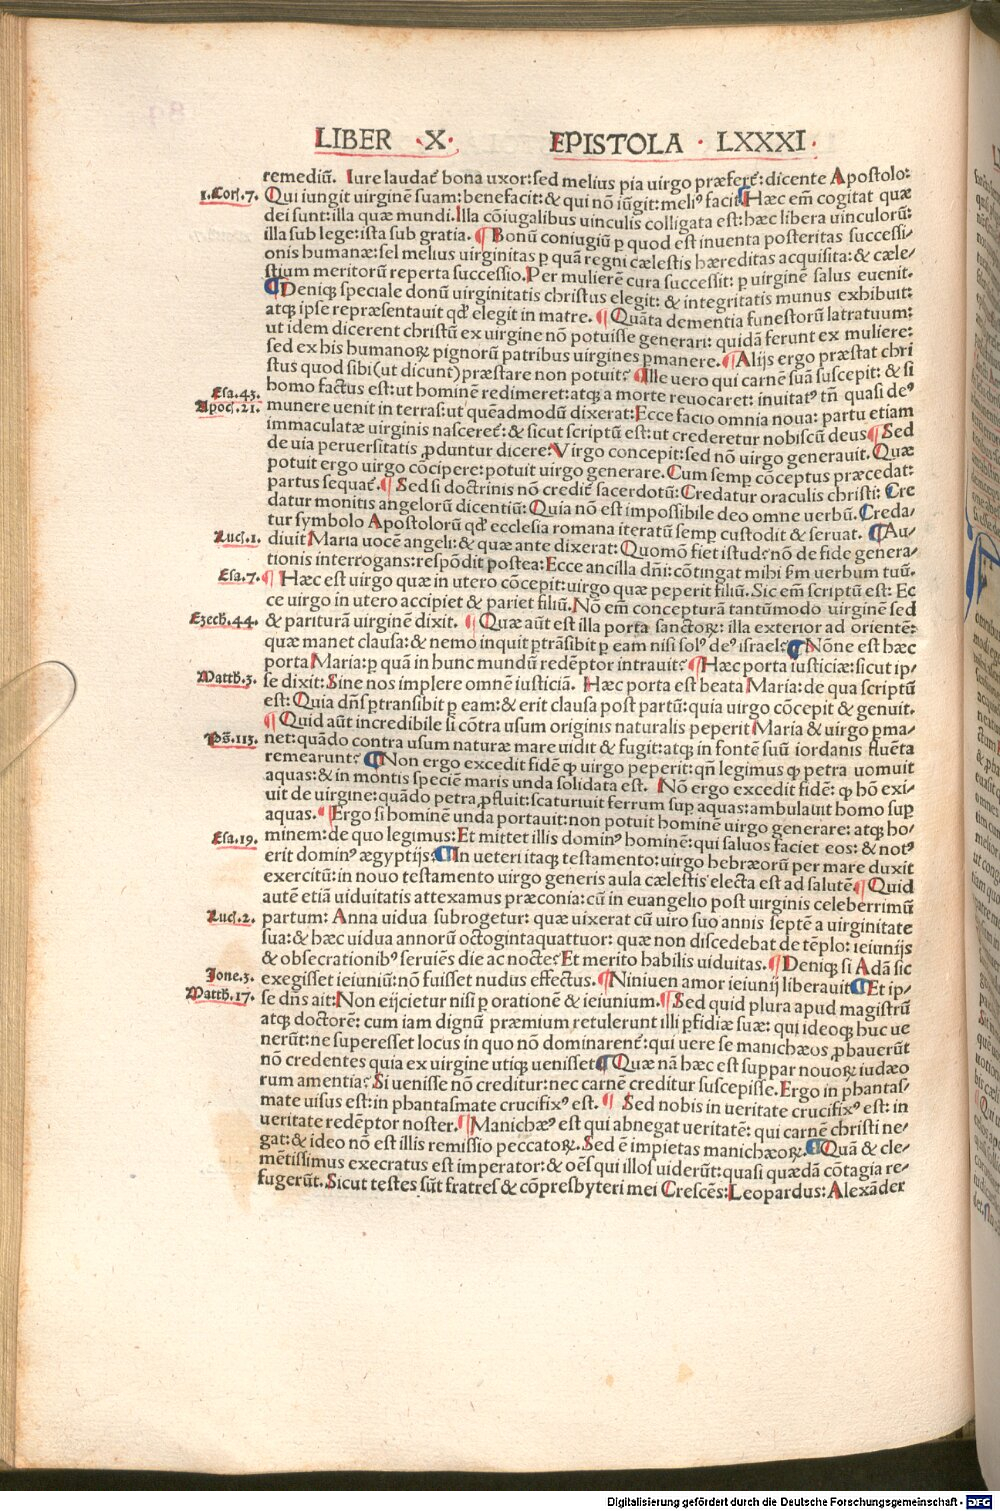 LIBER ·X· EPISTOLA · LXXXI·
remediū. Iure laudat̃ bona uxor: sed melius pia virgo præfert̃: dicente Apostolo:
1. Corĩ. 7. Qui iungit virginē suam: benefacit: & qui nō iūgit: meliꝰ facit ¶ Hæc em̄ cogitat quæ
dei sunt: illa quæ mundi. Illa cōiugalibus uinculis colligata est: hæc libera uinculorū:
illa sub lege: ista sub gratia. ¶ Bonū coniugiū ꝑ quod est inuenta posteritas successi⸗
onis humanæ: sel melius virginitas ꝑ quā regni cælestis hæreditas acquisita: & cæle⸗
stium meritorū reperta successio. Per mulierē cura successit: ꝑ virginē salus euenit.
¶ Deniqꝫ speciale donū uirginitatis christus elegit: & integritatis munus exhibuit:
atqꝫ ipse repræsentauit qđ elegit in matre. ¶ Quāta dementia funestorū latratuum:
ut idem dicerent christū ex uirgine nō potuisse generari: quidā ferunt ex muliere:
sed ex his humanoꝝ pignorū patribus uirgines ꝑmanere. ¶ Alijs ergo præstat chri
stus quod sibi (ut dicunt) præstare non potuit? ¶ Ille uero qui carnē suā suscepit: & si
Esa. 43. homo factus est: ut hominē redimeret: atqꝫ a morte reuocaret: inuitatꝰ tñ quasi deꝰ
Apocĩ. 21. munere uenit in terras: ut quēadmodū dixerat: Ecce facio omnia noua: partu etiam
immaculatæ uirginis nasceret̃: & sicut scriptū est: ut crederetur nobiscū deus ¶ Sed
de uia peruersitatis ꝓduntur dicere: Virgo concepit: sed nō uirgo generauit. Quæ
potuit ergo uirgo cōcipere: potuit uirgo generare. Cum semꝑ cōceptus præcedat:
partus sequat̃. ¶ Sed si doctrinis nō credit̃ sacerdotū: Credatur oraculis christi: Cre
datur monitis angelorū dicentiū: Quia nō est impossibile deo omne uerbū. Creda⸗
tur symbolo Apostolorū qđ ecclesia romana iteratū semꝑ custodit & seruat. ¶ Au⸗
Lucĩ. 1. diuit Maria uocē angeli: & quæ ante dixerat: Quomō fiet istud? nō de fide genera⸗
tionis interrogans: respōdit postea: Ecce ancilla dñi: cōtingat mihi ẜm uerbum tuū.
Esa. 7. ¶ Hæc est uirgo quæ in utero cōcepit: uirgo quæ peperit filiū. Sic em̄ scriptū est: Ec
ce uirgo in utero accipiet & pariet filiū. Nō em̄ concepturā tantūmodo uirginē sed
Ezech. 44. & pariturā uirginē dixit. ¶ Quæ aūt est illa porta sanctoꝝ: illa exterior ad orientē:
quæ manet clausa: & nemo inquit ꝑtrāsibit ꝑ eam nisi solꝰ deꝰ israel? ¶ Nōne est hæc
porta Maria: ꝑ quā in hunc mundū redēptor intrauit? ¶ Hæc porta iusticiæ: sicut ip⸗
Matth. 3. se dixit: Sine nos implere omnē iusticiā. Hæc porta est beata Maria: de qua scriptū
est: Quia dñs ꝑtransibit ꝑ eam: & erit clausa post partū: quia uirgo cōcepit & genuit.
¶ Quid aūt incredibile si cōtra usum originis naturalis peperit Maria & uirgo ꝑma⸗
Ps̄. 113. net: quādo contra usum naturæ mare uidit & fugit: atqꝫ in fontē suū iordanis fluēta
remearunt? ¶ Non ergo excedit fidē qꝫ uirgo peperit: qñ legimus qꝫ petra uomuit
aquas: & in montis speciē maris unda solidata est. Nō ergo excedit fidē: qꝫ hō exi⸗
uit de uirgine: quādo petra ꝓfluit: scaturiuit ferrum suꝑ aquas: ambulauit homo suꝑ
aquas. ¶ Ergo si hominē unda portauit: non potuit hominē uirgo generare: atqꝫ ho⸗
Esa. 19. minem: de quo legimus: Et mittet illis dominꝰ hominē: qui saluos faciet eos: & notꝰ
erit dominꝰ ægyptijs: ¶ In ueteri itaqꝫ testamento: uirgo hebræorū per mare duxit
exercitū: in nouo testamento uirgo generis aula cælestis electa est ad salutē ¶ Quid
autē etiā uiduitatis attexamus præconia: cū in euangelio post uirginis celeberrimū
Lucĩ. 2. partum: Anna uidua subrogetur: quæ uixerat cū uiro suo annis septē a uirginitate
sua: & hæc uidua annorū octogintaquattuor: quæ non discedebat de tēplo: ieiunijs
& obsecrationibꝰ seruiēs die ac nocte? Et merito habilis uiduitas. ¶ Deniqꝫ si Adā sic
Jone. 3. exegisset ieiuniū: nō fuisset nudus effectus. ¶ Niniuen amor ieiunij liberauit ¶ Et ip⸗
Matth. 17. se dñs ait: Non eijcietur nisi ꝑ orationē & ieiunium. ¶ Sed quid plura apud magistrū
atqꝫ doctorē: cum iam dignū præmium retulerunt illi ꝑfidiæ suæ: qui ideoqꝫ huc ue
nerūt: ne superesset locus in quo nō dominarent̃: qui uere se manichæos ꝓbauerūt
nō credentes quia ex uirgine utiqꝫ uenisset ¶ Quæ nā hæc est suppar nouoꝝ iudæo
rum amentia? Si uenisse nō creditur: nec carnē creditur suscepisse. Ergo in phantas⸗
mate uisus est: in phantasmate crucifixꝰ est. ¶ Sed nobis in ueritate crucifixꝰ est: in
ueritate redēptor noster. ¶ Manichæꝰ est qui abnegat ueritatē: qui carnē christi ne⸗
gat: & ideo nō est illis remissio peccatoꝝ. Sed ē impietas manichæoꝝ. ¶ Quā & cle⸗
mētissimus execratus est imperator: & oēs qui illos uiderūt: quasi quædā cōtagia re⸗
fugerūt. Sicut testes sūt fratres & cōpresbyteri mei Crescēs: Leopardus: Alexāder
Digitalisierung gefördert durch die Deutsche Forschungsgemeinschaft - DFG